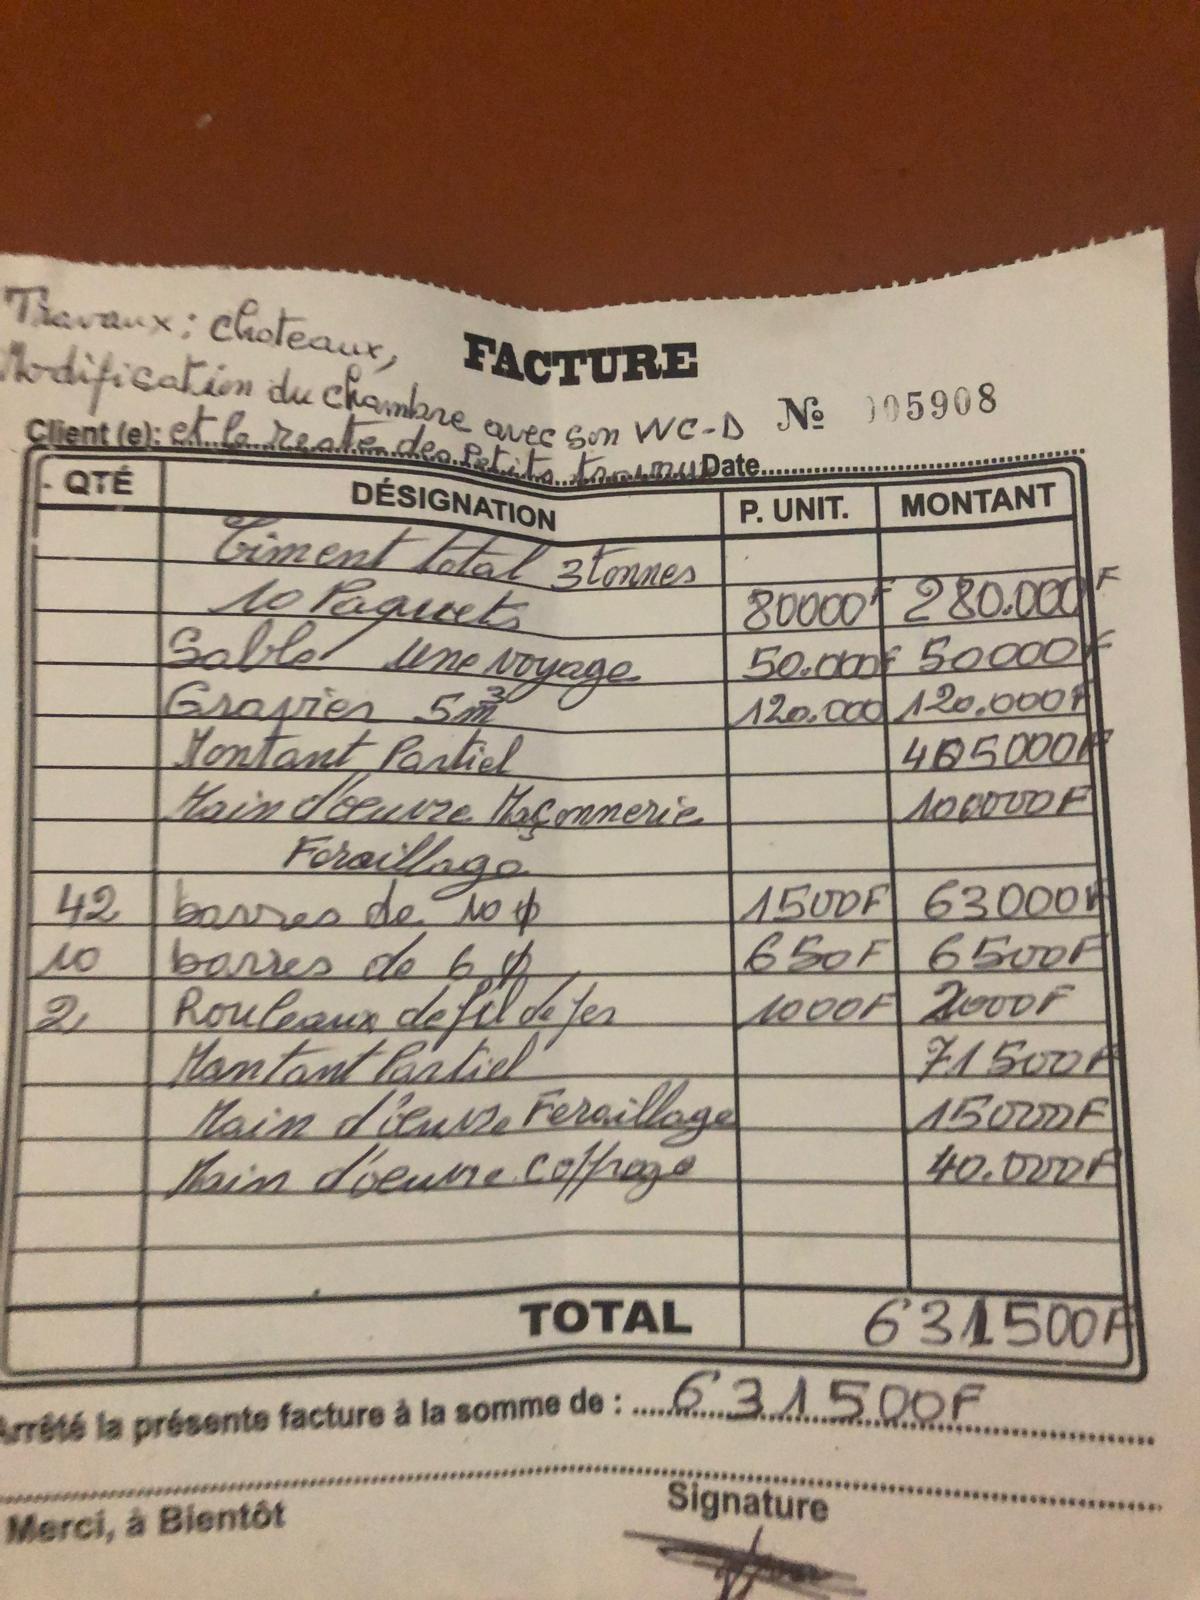 Travaux: choteaux,
Modification du chambre avec son WC-D
FACTURE
Nº 05908
Client (e): et le reste des Petits travaux Date
QTÉ DÉSIGNATION P. UNIT. MONTANT
Ciment total 3 tonnes
10 Paquets 80000F 280.000F
Sable une voyage 50.000F 50000F
Gravier 5m³ 120.000 120.000F
Montant Partiel 000F
Main d'oeuvre Maçonnerie 100000F
Feraillage
42 barres de 10 ϕ 1500F 63000F
10 barres de 6 ϕ 650F 6500F
2 Rouleaux de fil de fer 1000F 2000F
Montant Partiel 71500F
Main d'oeuvre Feraillage 15000F
Main d'oeuvre Coffrage 40.000F
TOTAL 631500F
Arrêté la présente facture à la somme de : 631500F
Merci, à Bientôt
Signature